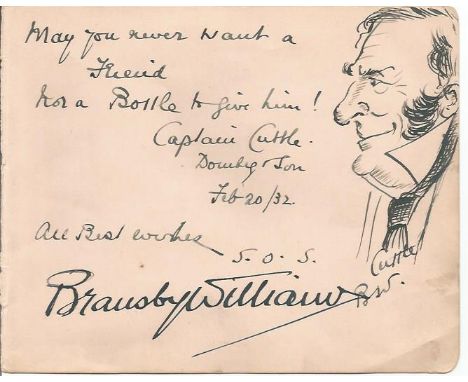 May you never want a
Friend
Nor a Bottle to give him!
Captain Cuttle.
Dombey & Son
Feb 20/32
All Best wishes
S. O. S.
Bransby Williams
Cuttle
B.W.